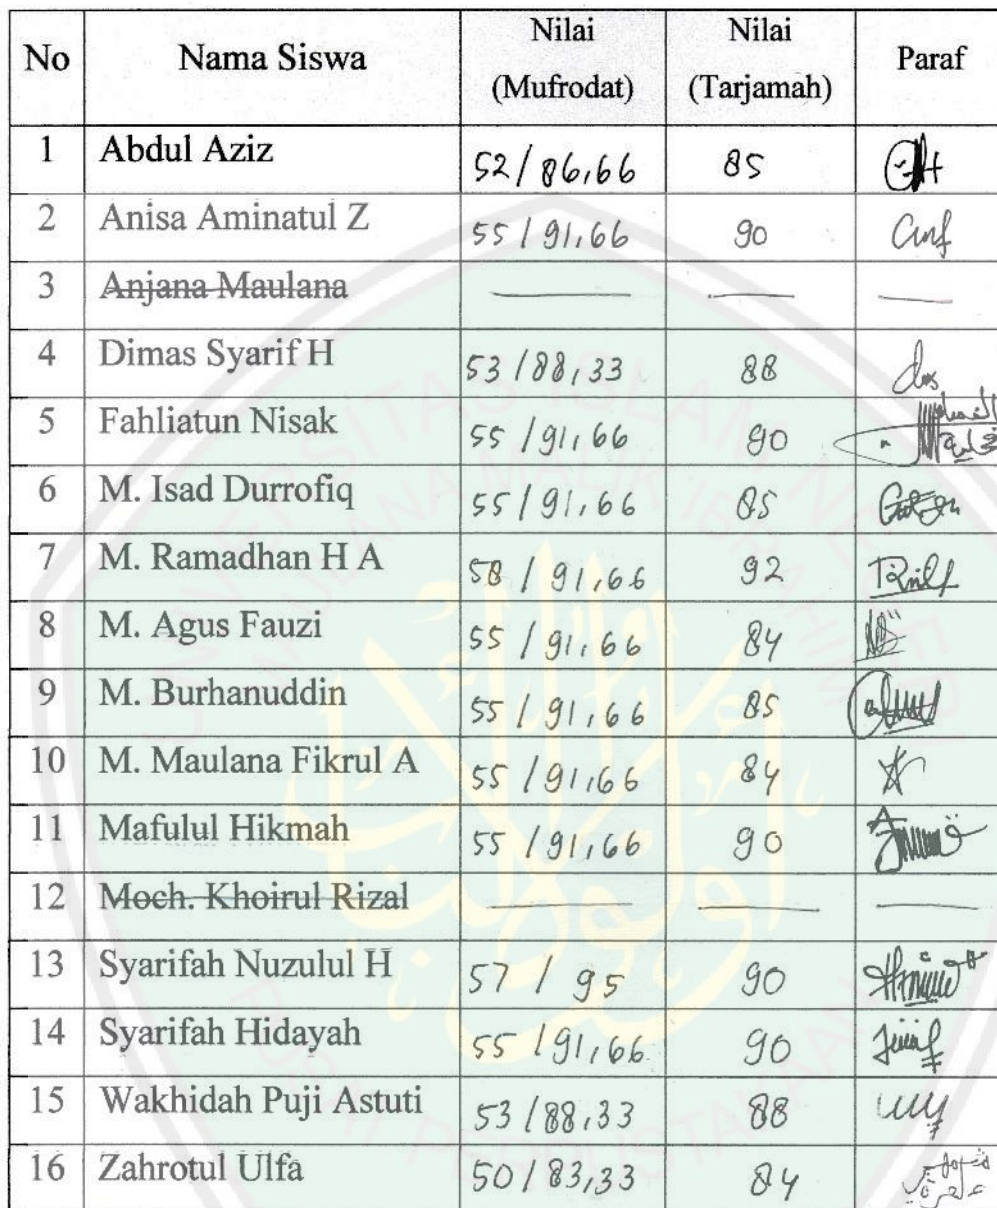 No Nama Siswa Nilai (Mufrodat) Nilai (Tarjamah) Paraf
1 Abdul Aziz 52/86,66 85
2 Anisa Aminatul Z 55/91,66 90
3 Anjana Maulana — — —
4 Dimas Syarif H 53/88,33 88
5 Fahliatun Nisak 55/91,66 90
6 M. Isad Durrofiq 55/91,66 85
7 M. Ramadhan H A 58/91,66 92
8 M. Agus Fauzi 55/91,66 84
9 M. Burhanuddin 55/91,66 85
10 M. Maulana Fikrul A 55/91,66 84
11 Mafulul Hikmah 55/91,66 90
12 Moch. Khoirul Rizal — — —
13 Syarifah Nuzulul H 57/95 90
14 Syarifah Hidayah 55/91,66 90
15 Wakhidah Puji Astuti 53/88,33 88
16 Zahrotul Ulfa 50/83,33 84
UNIVERSITAS ISLAM NEGERI
MAULANA MALIK IBRAHIM
PUSAT PERPUSTAKAAN